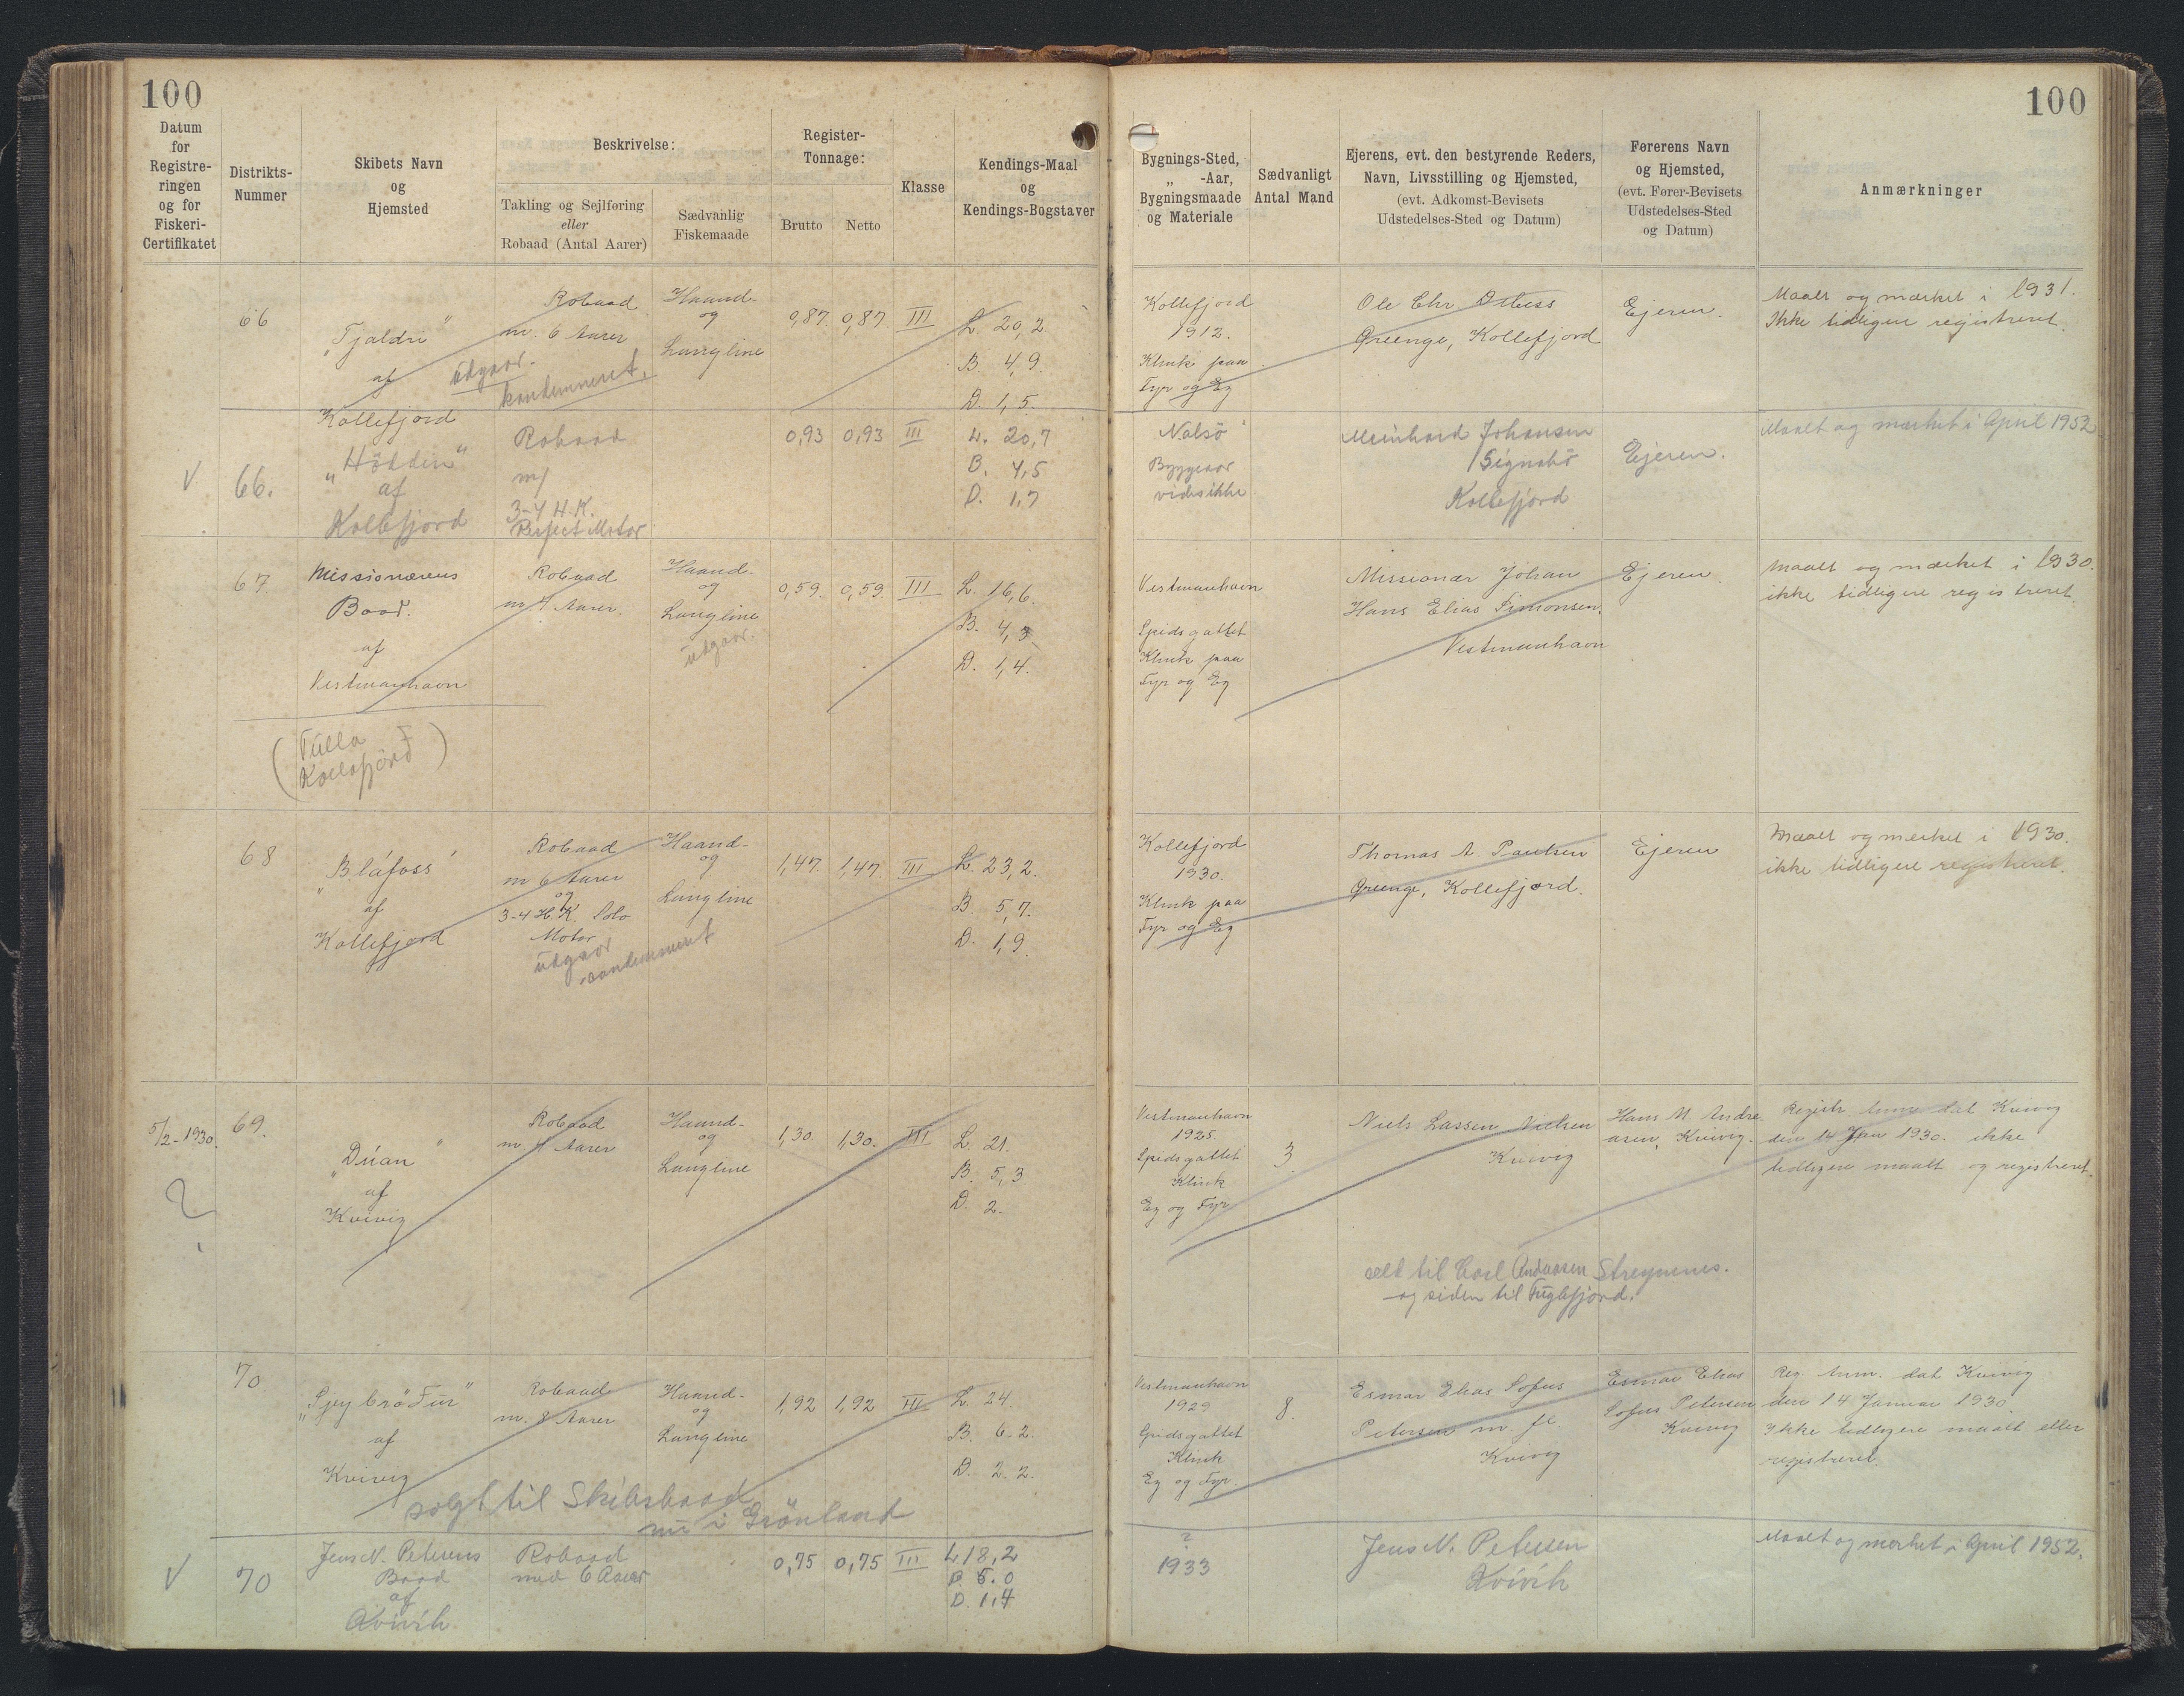 100
100
Datum
for
Registre-
ringen
og for
Fiskeri-
Certifikatet
Distrikts-
Nummer
Skibets Navn
og
Hjemsted
Beskrivelse:
Takling og Sejlføring
eller
Robaad (Antal Aarer)
Sædvanlig
Fiskemaade
Register-
Tonnage:
Brutto Netto
Klasse
Kendings-Maal
og
Kendings-Bogstaver
Bygnings-Sted,
„ -Aar,
Bygningsmaade
og Materiale
Sædvanligt
Antal Mand
Ejerens, evt. den bestyrende Reders,
Navn, Livsstilling og Hjemsted,
(evt. Adkomst-Bevisets
Udstedelses-Sted og Datum)
Førerens Navn
og Hjemsted,
(evt. Fører-Bevisets
Udstedelses-Sted
og Datum)
Anmærkninger
66
„Tjaldri“
af
Kollefjord
Robaad
m. 6 Aarer
udgaar.
kondemneret.
Haand-
og
Langline
0,87. 0,87. III
L. 20,2.
B. 4,9.
D. 1,5.
Kollefjord
1912.
Klink paa
Fyr og Eg
Ole Chr.
Kollefjord
Ejeren.
Maalt og mærket i 1931.
Ikke tidligere registreret.
V 66.
af
Kollefjord
Robaad
m/
3-4 H.K.
Perfect Motor
0,93 0,93 III
L. 20,7
B. 4,5
D. 1,7
Nolsö
Byggeaar
vides ikke
Meinhard Johansen
Signabö
Kollefjord
Ejeren.
Maalt og mærket i April 1952
67.
Missionærens
Baad.
af
Vestmanhavn
Robaad
m 4 Aarer.
Haand-
og
Langline
udgaar.
0,59. 0,59. III
L. 16,6.
B. 4,3
D. 1,4.
Vestmanhavn
Spidsgattet
Klink paa
Fyr og Eg
Missionær Johan
Hans Elias Simonsen.
Vestmanhavn
Ejeren.
Maalt og mærket i 1930.
ikke tidligere registreret.
(Tulla
Kollafjørð)
68
„Bláfoss“
af
Kollefjord
Robaad
m 6 Aarer
og
3-4 H.K. Solo
Motor
udgaar
Haand-
og
Langline
1,47. 1,47. III
L. 23,2.
B. 5,7.
D. 1,9.
Kollefjord
1930.
Klink paa
Fyr og Eg
Thomas A. Paulsen
Kollefjord.
Ejeren
Maalt og mærket i 1930.
ikke tidligere registreret.
5/2-1930. 69.
?
„Dúan“
af
Kvivig
Robaad
m. 4 Aarer
Haand-
og
Langline
1,30. 1,30. III
L. 21.
B. 5,3
D. 2.
Vestmanhavn
1925.
Spidsgattet
Klink
Eg og Fyr
3
Niels Lassen Nielsen
Kvivig
Hans M. Andre
asen, Kvivig.
Registr. Anm. dat Kvivig
den 14 Jan 1930. ikke
tidligere maalt og registreret.
selt til Carl Andreasen Streymnes.
og siden til Fuglefjord.
70
„Sjeybröðúr“
af
Kvivig
Robaad
m. 8 Aarer
Haand-
og
Langline
1,92 1,92 III
L. 24.
B. 6.2.
D. 2.2.
Vestmanhavn
1929
Spidsgattet
Klink
Eg og Fyr.
8.
Esmar Elias Sofus
Petersen m. fl.
Kvivig
Esmar Elias
Sofus Petersen
Kvivig
Reg. Anm. dat Kvivig
den 14 Januar 1930.
Ikke tidligere maalt eller
registreret.
solgt til Skibsbaad
nu i Grönland
V 70
Jens N. Petersens
Baad
af
Kvivik.
Robaad
med 6 Aarer
0,75 0,75 III
L 18,2
B 5.0
D. 1.4
?
1933
Jens N. Petersen
Kvivik
Maalt og mærket i April 1952.